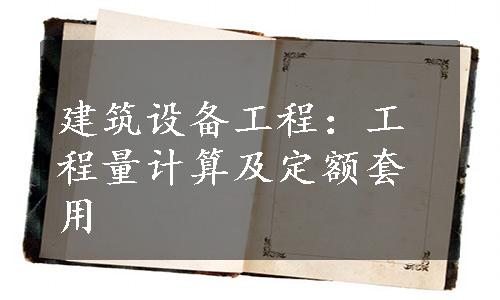 建筑设备工程：工
程量计算及定额套
用